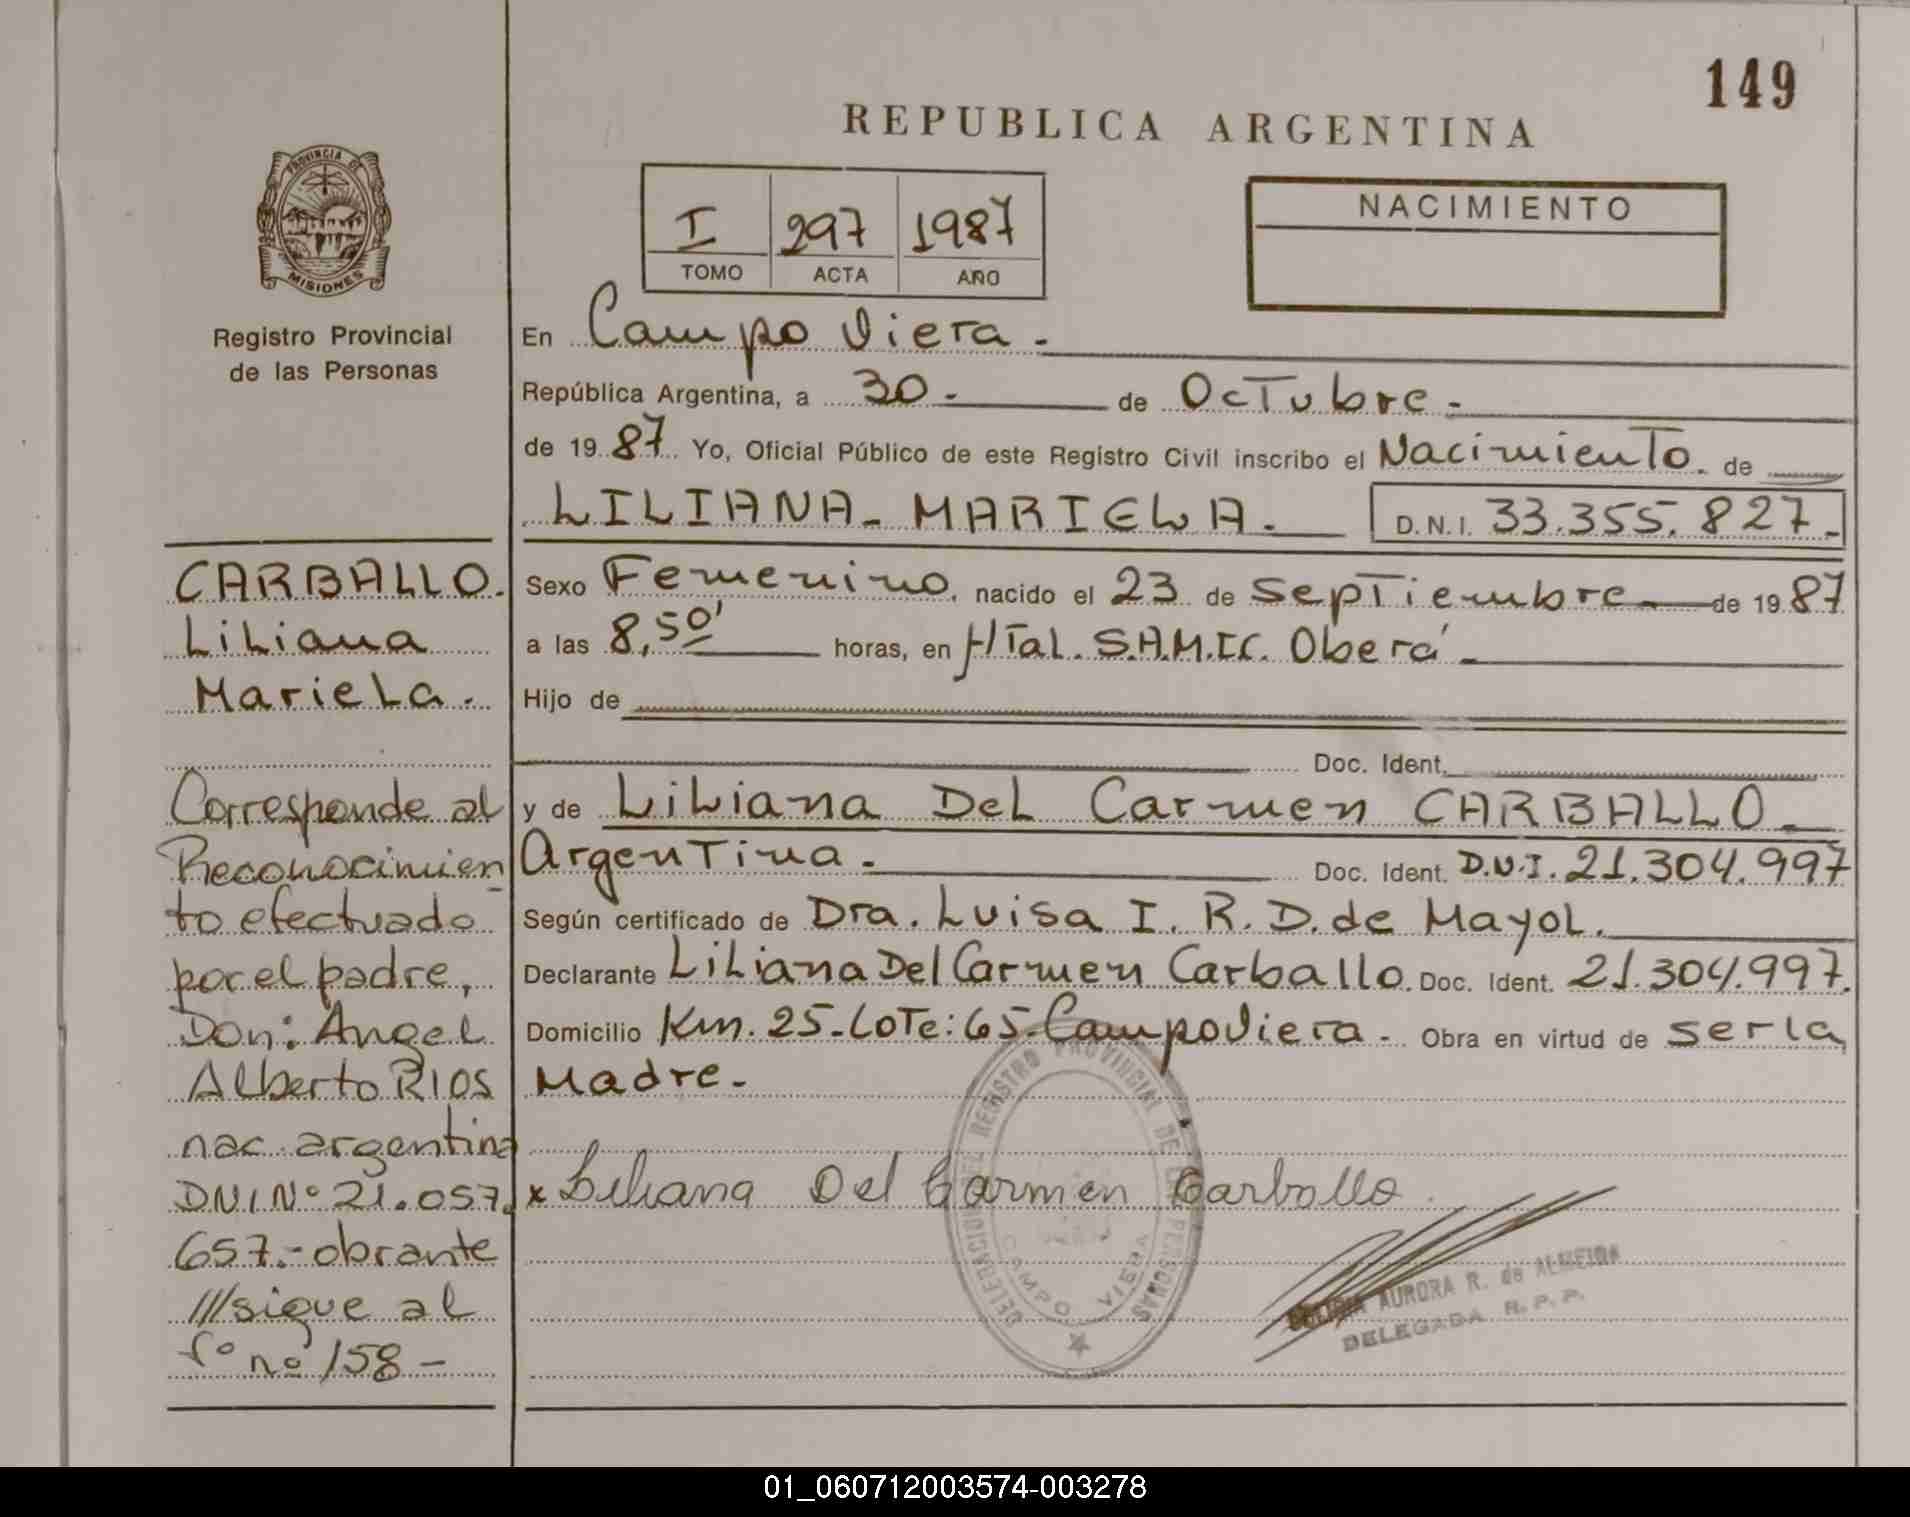 149
REPUBLICA ARGENTINA
PROVINCIA DE
MISIONES
Registro Provincial
de las Personas
I 297 1987
TOMO ACTA AÑO
NACIMIENTO
En Campo Viera.-
República Argentina, a 30.- de Octubre.-
de 1987 Yo, Oficial Público de este Registro Civil inscribo el Nacimiento. de
LILIANA - MARIELA. D.N.I. 33.355.827.-
Sexo Femenino. nacido el 23 de Septiembre de 1987
a las 8,50' horas, en HTal. S.A.M.IC. Oberá.-
Hijo de
Doc. Ident.
y de Liliana Del Carmen CARBALLO.-
Argentina.- Doc. Ident. D.N.I. 21.304.997
Según certificado de Dra. Luisa I. R. D. de Mayol.
Declarante Liliana Del Carmen Carballo. Doc. Ident. 21.304.997.
Domicilio Km. 25-Lote: 65-Campo Viera.- Obra en virtud de ser la
Madre.-
x Liliana Del Carmen Carballo.
DELEGACION DEL REGISTRO PROVINCIAL DE LAS PERSONAS
CAMPO VIERA
AURORA R. de ALMEIDA
DELEGADA R. P. P.
CARBALLO.
Liliana
Mariela.
Corresponde al
Reconocimien
to efectuado
por el padre,
Don: Angel
Alberto RIOS
nac. argentina
DNI Nº 21.057.
657.- obrante
///sigue al
fº nº 158-
01_060712003574-003278